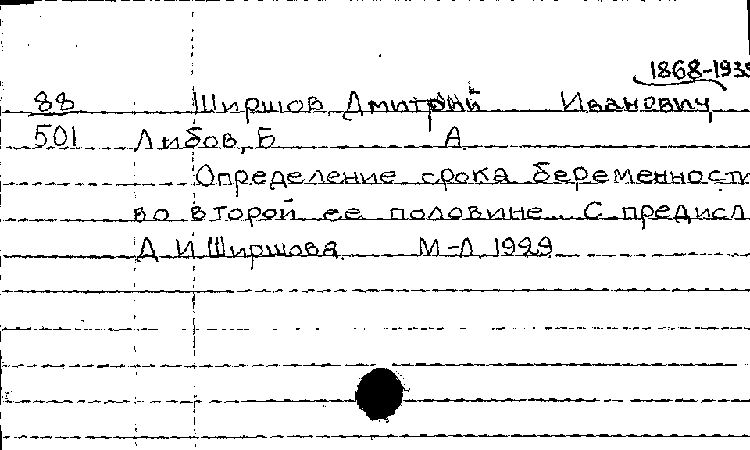 1868-1935
88 Ширшов, Дмитрий Иванович
501 Либов, Б А
Определение срока беременности
во второй ее половине. С предисл
Д И Ширшова М-Л 1929